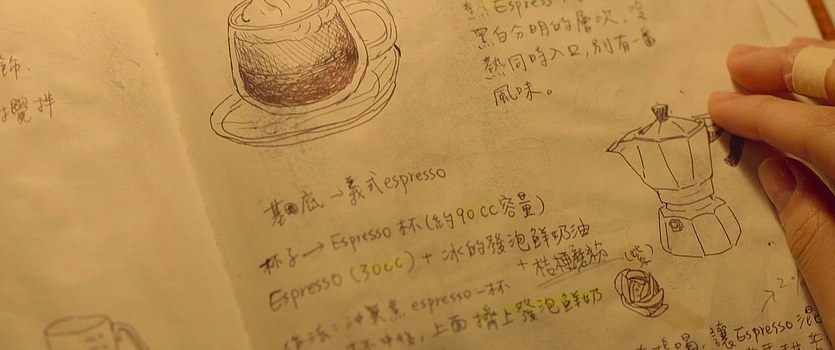 飾、
攪拌
熱 Espress
黑白分明的層次,冷
熱同時入口,別有一番
風味。
基底→義式espresso
杯子→Espresso 杯(約90cc容量)
Espresso (30cc) + 冰的發泡鮮奶油
+ 桔種蘑菰
做法:沖煮 espresso一杯
上面擠上發泡鮮奶
喝,讓Espresso混